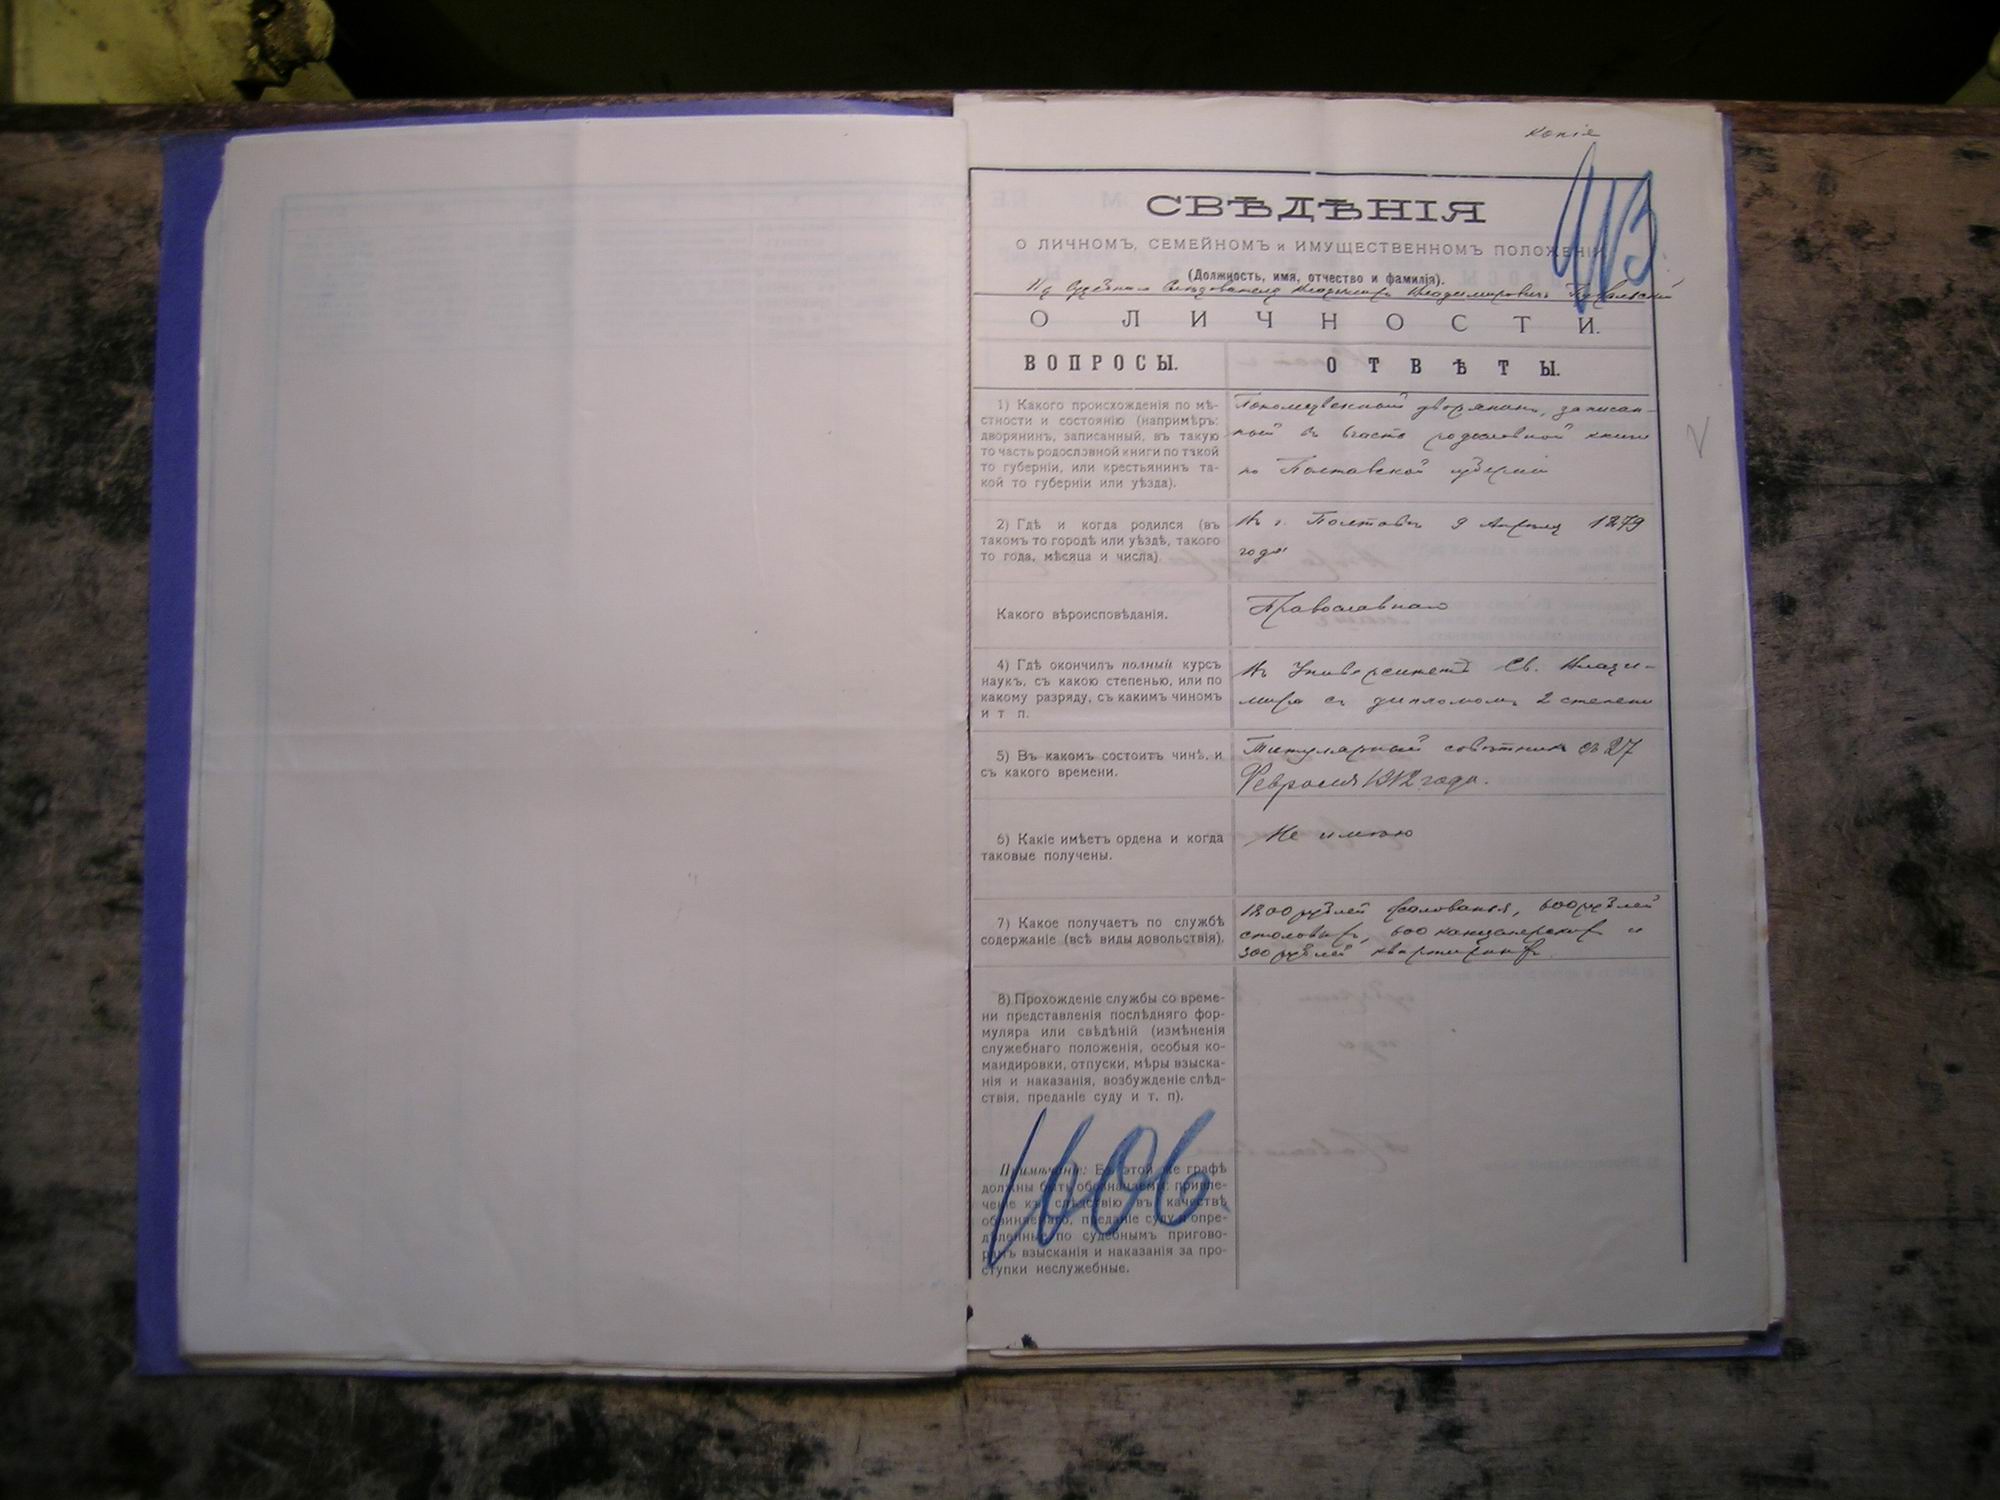 копія
СВѢДѢНІЯ
О ЛИЧНОМЪ, СЕМЕЙНОМЪ и ИМУЩЕСТВЕННОМЪ ПОЛОЖЕНІИ
(Должность, имя, отчество и фамилія).
Судебный Слѣдователь Владиміръ Владиміровичъ
О ЛИЧНОСТИ.
ВОПРОСЫ.
ОТВѢТЫ.
1) Какого происхожденія по мѣ-
стности и состоянію (напримѣръ:
дворянинъ, записанный, въ такую
то часть родословной книги по такой
то губерніи, или крестьянинъ та-
кой то губерніи или уѣзда).
Потомственный дворянинъ, записан-
ный въ часть родословной книги
по Полтавской губерніи
2) Гдѣ и когда родился (въ
такомъ то городѣ или уѣздѣ, такого
то года, мѣсяца и числа).
Въ г. Полтавѣ 9 Апрѣля 1879
года
Какого вѣроисповѣданія.
Православнаго
4) Гдѣ окончилъ полный курсъ
наукъ, съ какою степенью, или по
какому разряду, съ какимъ чиномъ
и т п.
Въ Университетѣ Св. Влади-
міра съ дипломомъ 2 степени
5) Въ каком состоитъ чинѣ, и
съ какого времени.
Титулярный совѣтникъ съ 27
Февраля 1912 года.
6) Какіе имѣетъ ордена и когда
таковые получены.
Не имѣю
7) Какое получаетъ по службѣ
содержаніе (всѣ виды довольствія).
1200 рублей жалованья, 600 рублей
столовыхъ, 600 канцелярскихъ и
300 рублей квартирныхъ.
8) Прохожденіе службы со време-
ни представленія послѣдняго фор-
муляра или свѣдѣній (измѣненія
служебнаго положенія, особыя ко-
мандировки, отпуски, мѣры взыска-
нія и наказанія, возбужденіе слѣд-
ствія, преданіе суду и т. п).
Примѣчаніе: Въ этой же графѣ
должны быть обозначаемы: привле-
ченіе къ слѣдствію въ качествѣ
обвиняемаго, преданіе суду и опре-
дѣленныя по судебнымъ пригово-
рамъ взысканія и наказанія за про-
ступки неслужебные.